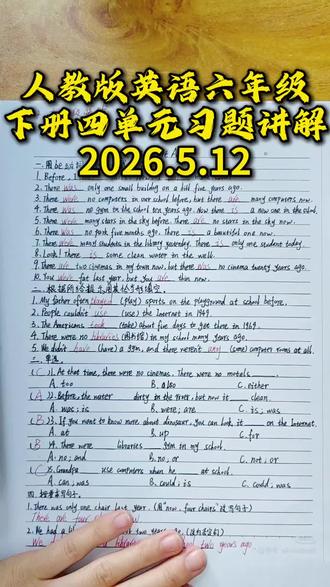 人教版英语六年级
下册四单元习题讲解
2026.5.12
一.用be动词
1. Before,
2. There was only one small building on a hill five years ago.
3. There were no computers in our school before, but there are many computers now.
4. There was no gym in the school ten years ago. Now there is a new one in the
5. There were many stars in the sky before. There are no stars in the sky now.
6. There was no park five months ago. There is a beautiful one now.
7. There were many students in the library yesterday. There is only one student today.
8. Look! There is some clean water in the well.
9. There are two cinemas in my town now, but there was no cinema twenty years ago.
10. You were fat last year, but you are thin now.
1. My father often played (play) sports on the playground at school before.
2. People couldn't use (use) the Internet in 1949.
3. The Americans took (take) about five days to get there in 1969.
4. There were no libraries (图书馆) in my school many years ago.
5. We didn't have (have) a gym, and there weren't any (some) computer rooms at all.
三.单选
( C )1. At that time, there were no cinemas. There were no motels
A. too B. also C. either
( A )2. Before, the water dirty in the river, but now it clean.
A. was; is B. were; are C. is; was
( B )3. If you want to know more about dinosaur, you can look it on the Internet.
A. at B. up C. for
( B )4. There were libraries gym in my school.
A. no; and B. no; or C. not; or
( C )5. Grandpa use computers when he at school.
A. can; was B. could; is C. could; was
四.按要求写句子
1. There was only one chair last year. (用"now, four chairs"改写句子)
There are four
2. We had a two years ago.
We two years ago.